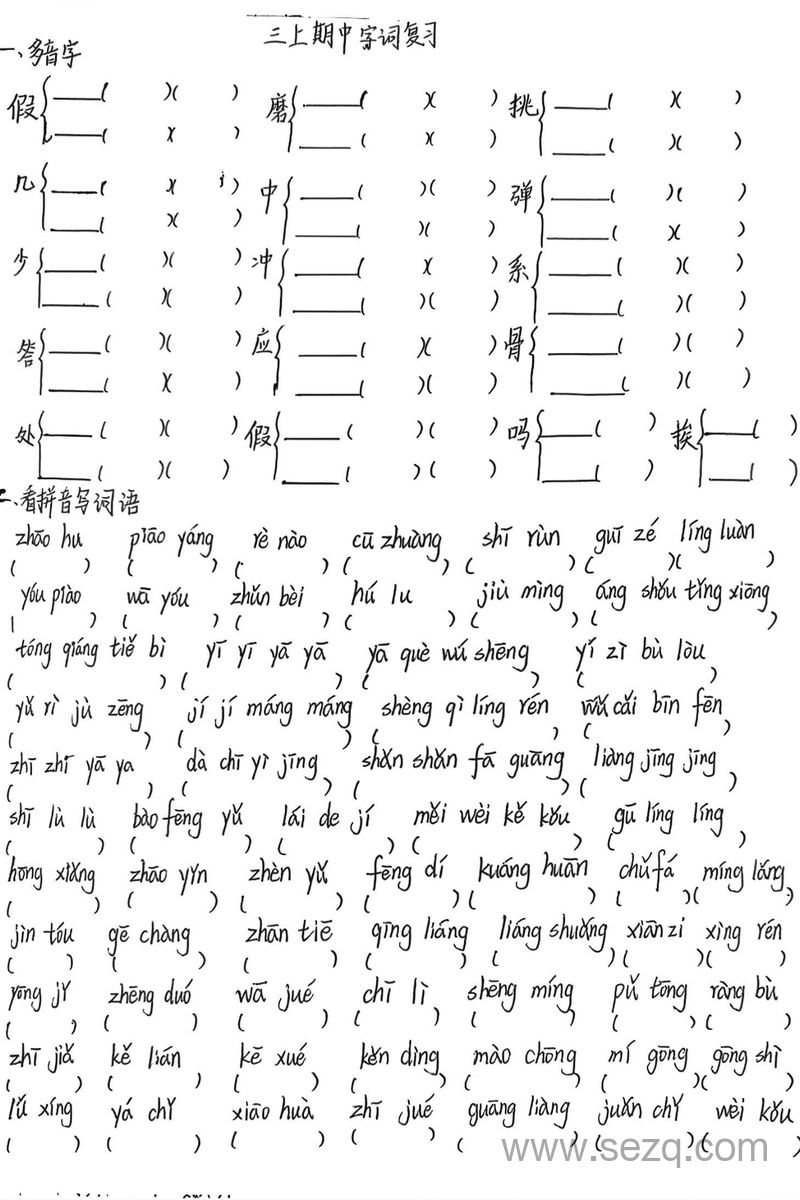 三上期中字词复习
一、多音字
假{____( )( ) 磨{____( )( ) 挑{____( )( )
____( )( ) ____( )( ) ____( )( )
几{____( )( ) 中{____( )( ) 弹{____( )( )
____( )( ) ____( )( ) ____( )( )
少{____( )( ) 冲{____( )( ) 系{____( )( )
____( )( ) ____( )( ) ____( )( )
答{____( )( ) 应{____( )( ) 骨{____( )( )
____( )( ) ____( )( ) ____( )( )
处{____( )( ) 假{____( )( ) 吗{____( ) 挨{____( )
____( )( ) ____( )( ) ____( ) ____( )
二、看拼音写词语
zhāo hu piāo yáng rè nào cū zhuàng shī rùn guī zé líng luàn
( ) ( ) ( ) ( ) ( ) ( )( )
yóu piào wā yóu zhǔn bèi hú lu jiù mìng áng shǒu tǐng xiōng
( ) ( ) ( ) ( ) ( ) ( )
tóng qiáng tiě bì yī yī yā yā yā què wú shēng yí zì bù lòu
( ) ( ) ( ) ( )
yǔ rì jù zēng jí jí máng máng shèng qì líng rén wǔ cǎi bīn fēn
( ) ( ) ( ) ( )
zhī zhī yā ya dà chī yì jīng shǎn shǎn fā guāng liàng jīng jīng
( ) ( ) ( ) ( )
shī lù lù bào fēng yǔ lái de jí měi wèi kě kǒu gū líng líng
( ) ( ) ( ) ( ) ( )
hōng xiǎng zhāo yǐn zhèn yǔ fēng dí kuáng huān chǔ fá míng lǎng
( ) ( ) ( ) ( )( ) ( )( )
jìn tóu gē chàng zhān tiē qīng liáng liáng shuǎng xiān zi xìng rén
( ) ( ) ( ) ( ) ( ) ( )( )
yōng jǐ zhēng duó wā jué chī lì shēng míng pǔ tōng ràng bù
( ) ( ) ( ) ( ) ( ) ( )( )
zhī jiǎ kě lián kē xué kěn dìng mào chōng mí gōng gōng shì
( ) ( ) ( ) ( ) ( ) ( )( )
lǚ xíng yá chǐ xiāo huà zhī jué guāng liàng juǎn chǐ wèi kǒu
( ) ( ) ( ) ( ) ( ) ( ) ( )
www.sezq.com